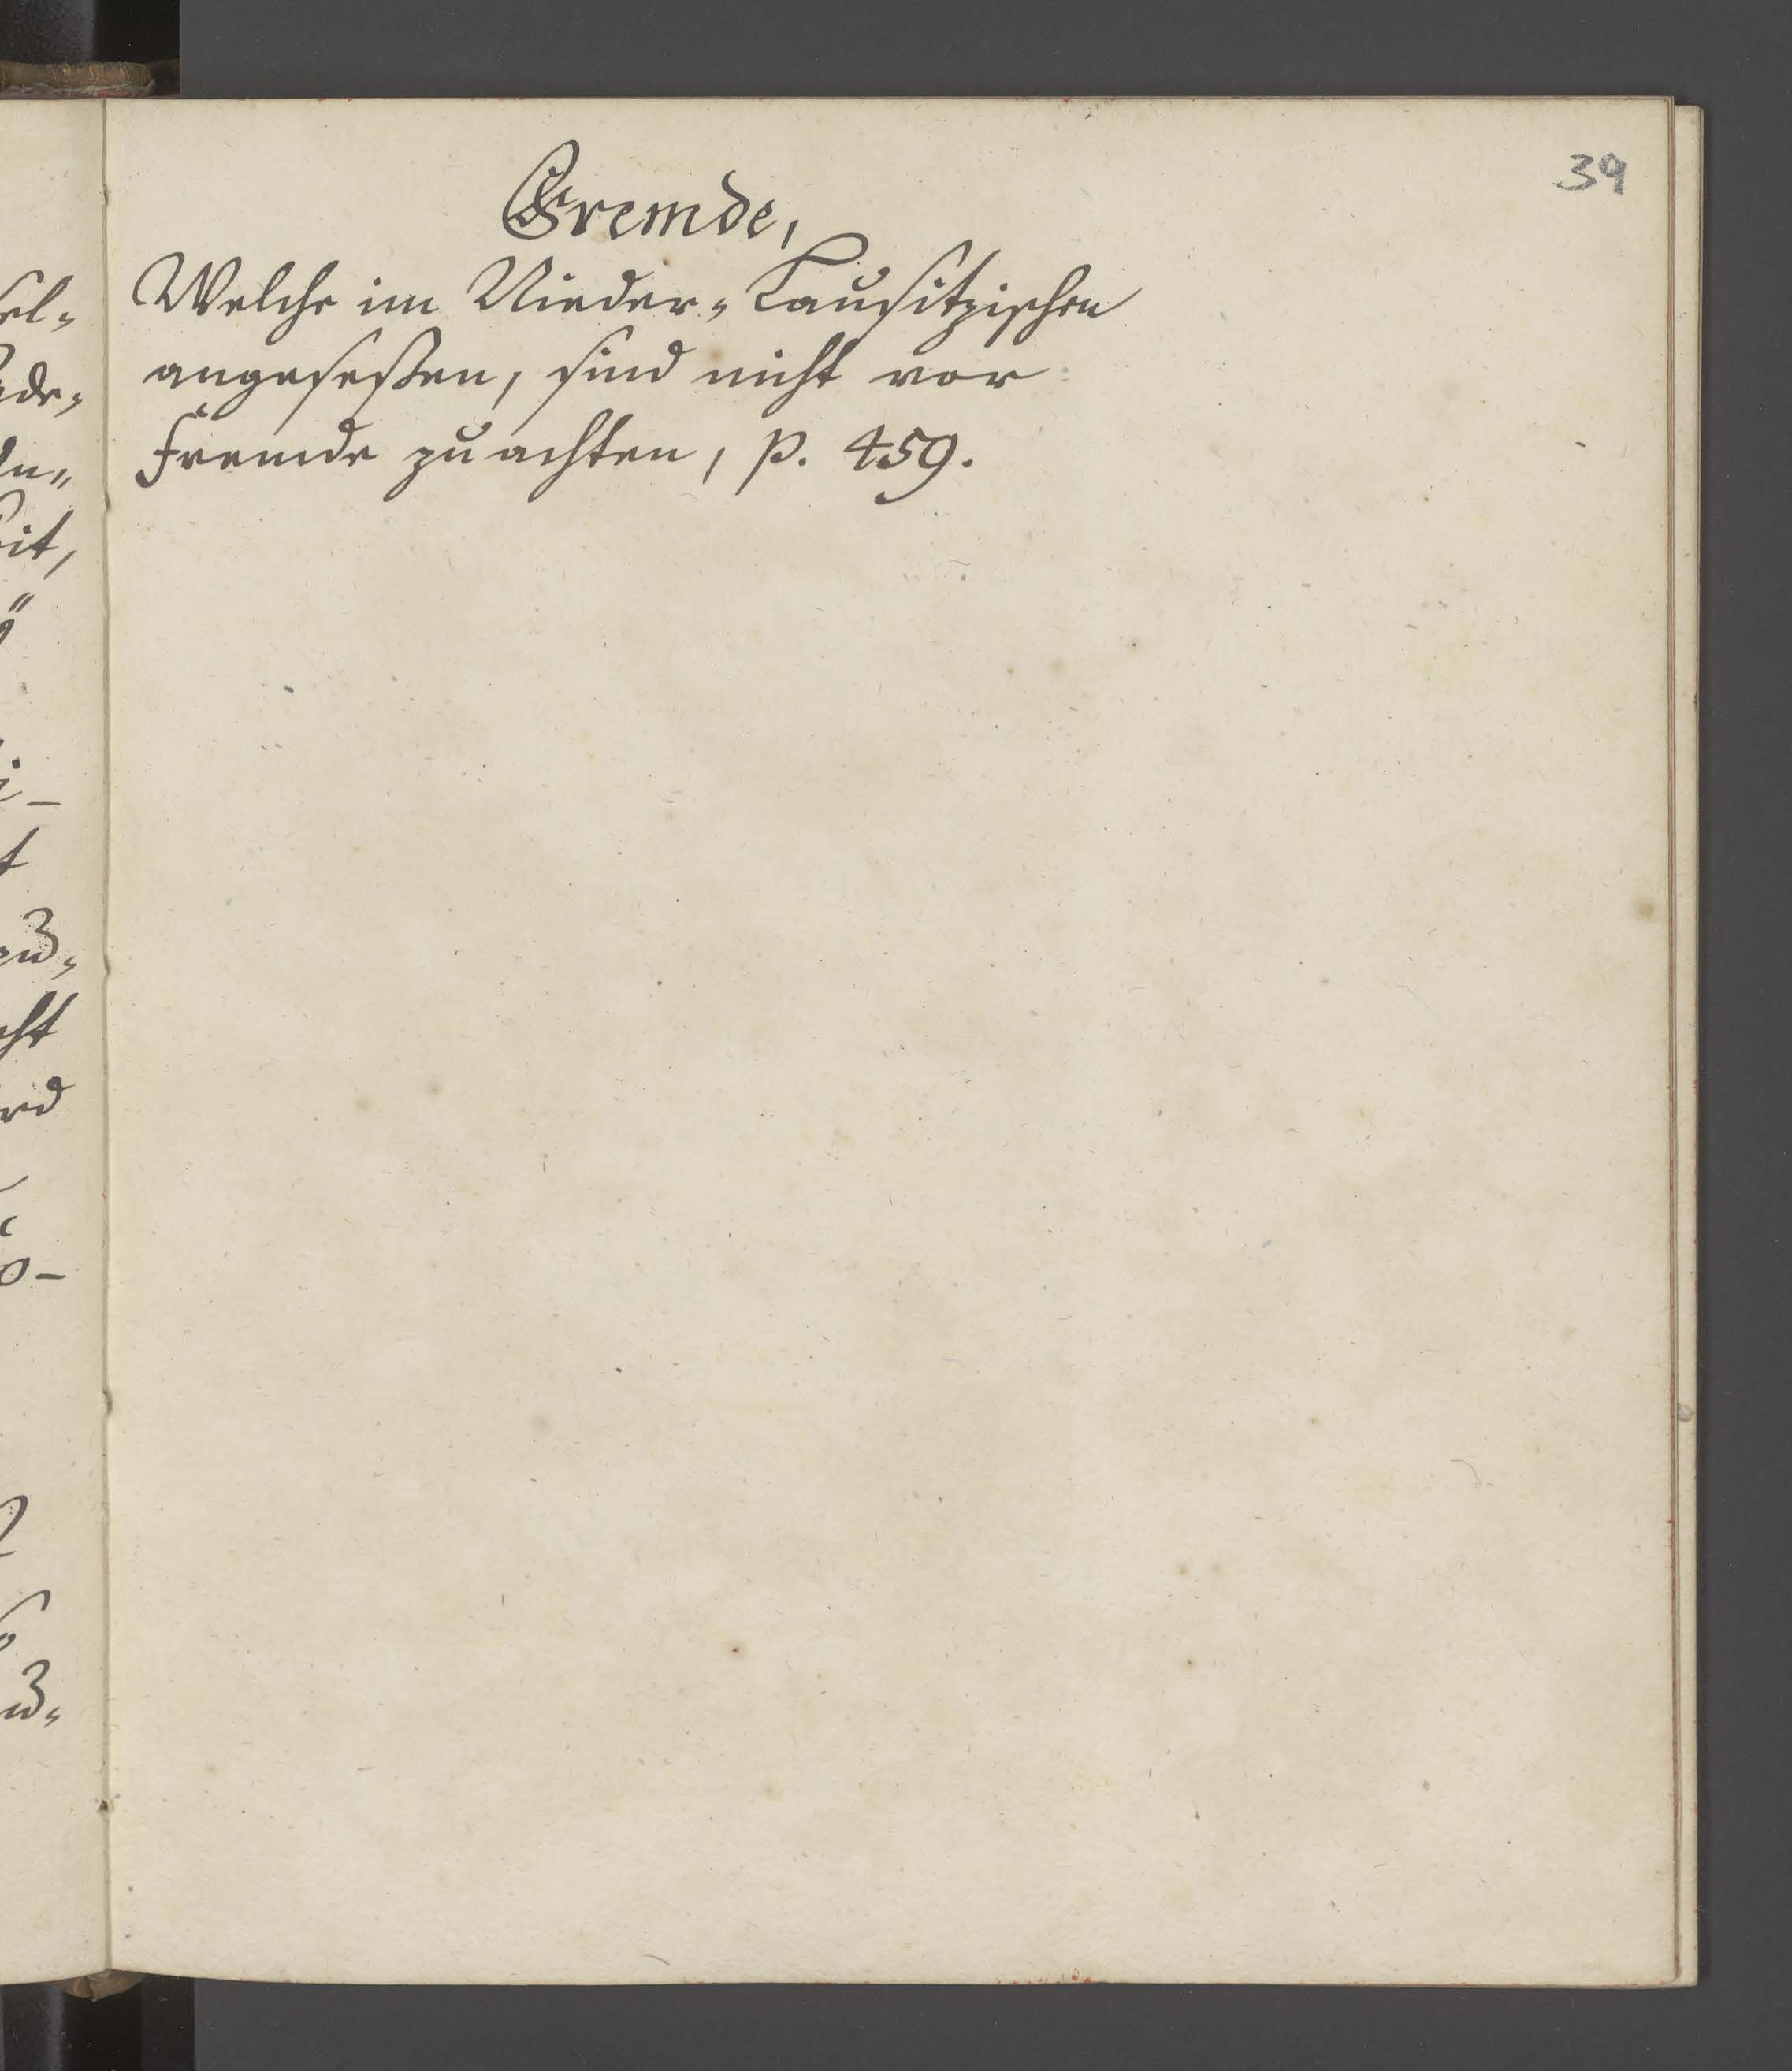 39
Fremde,
Welche im Nieder-Lausitzischen
angeseßen, sind nicht vor
Fremde zu achten, p. 459.